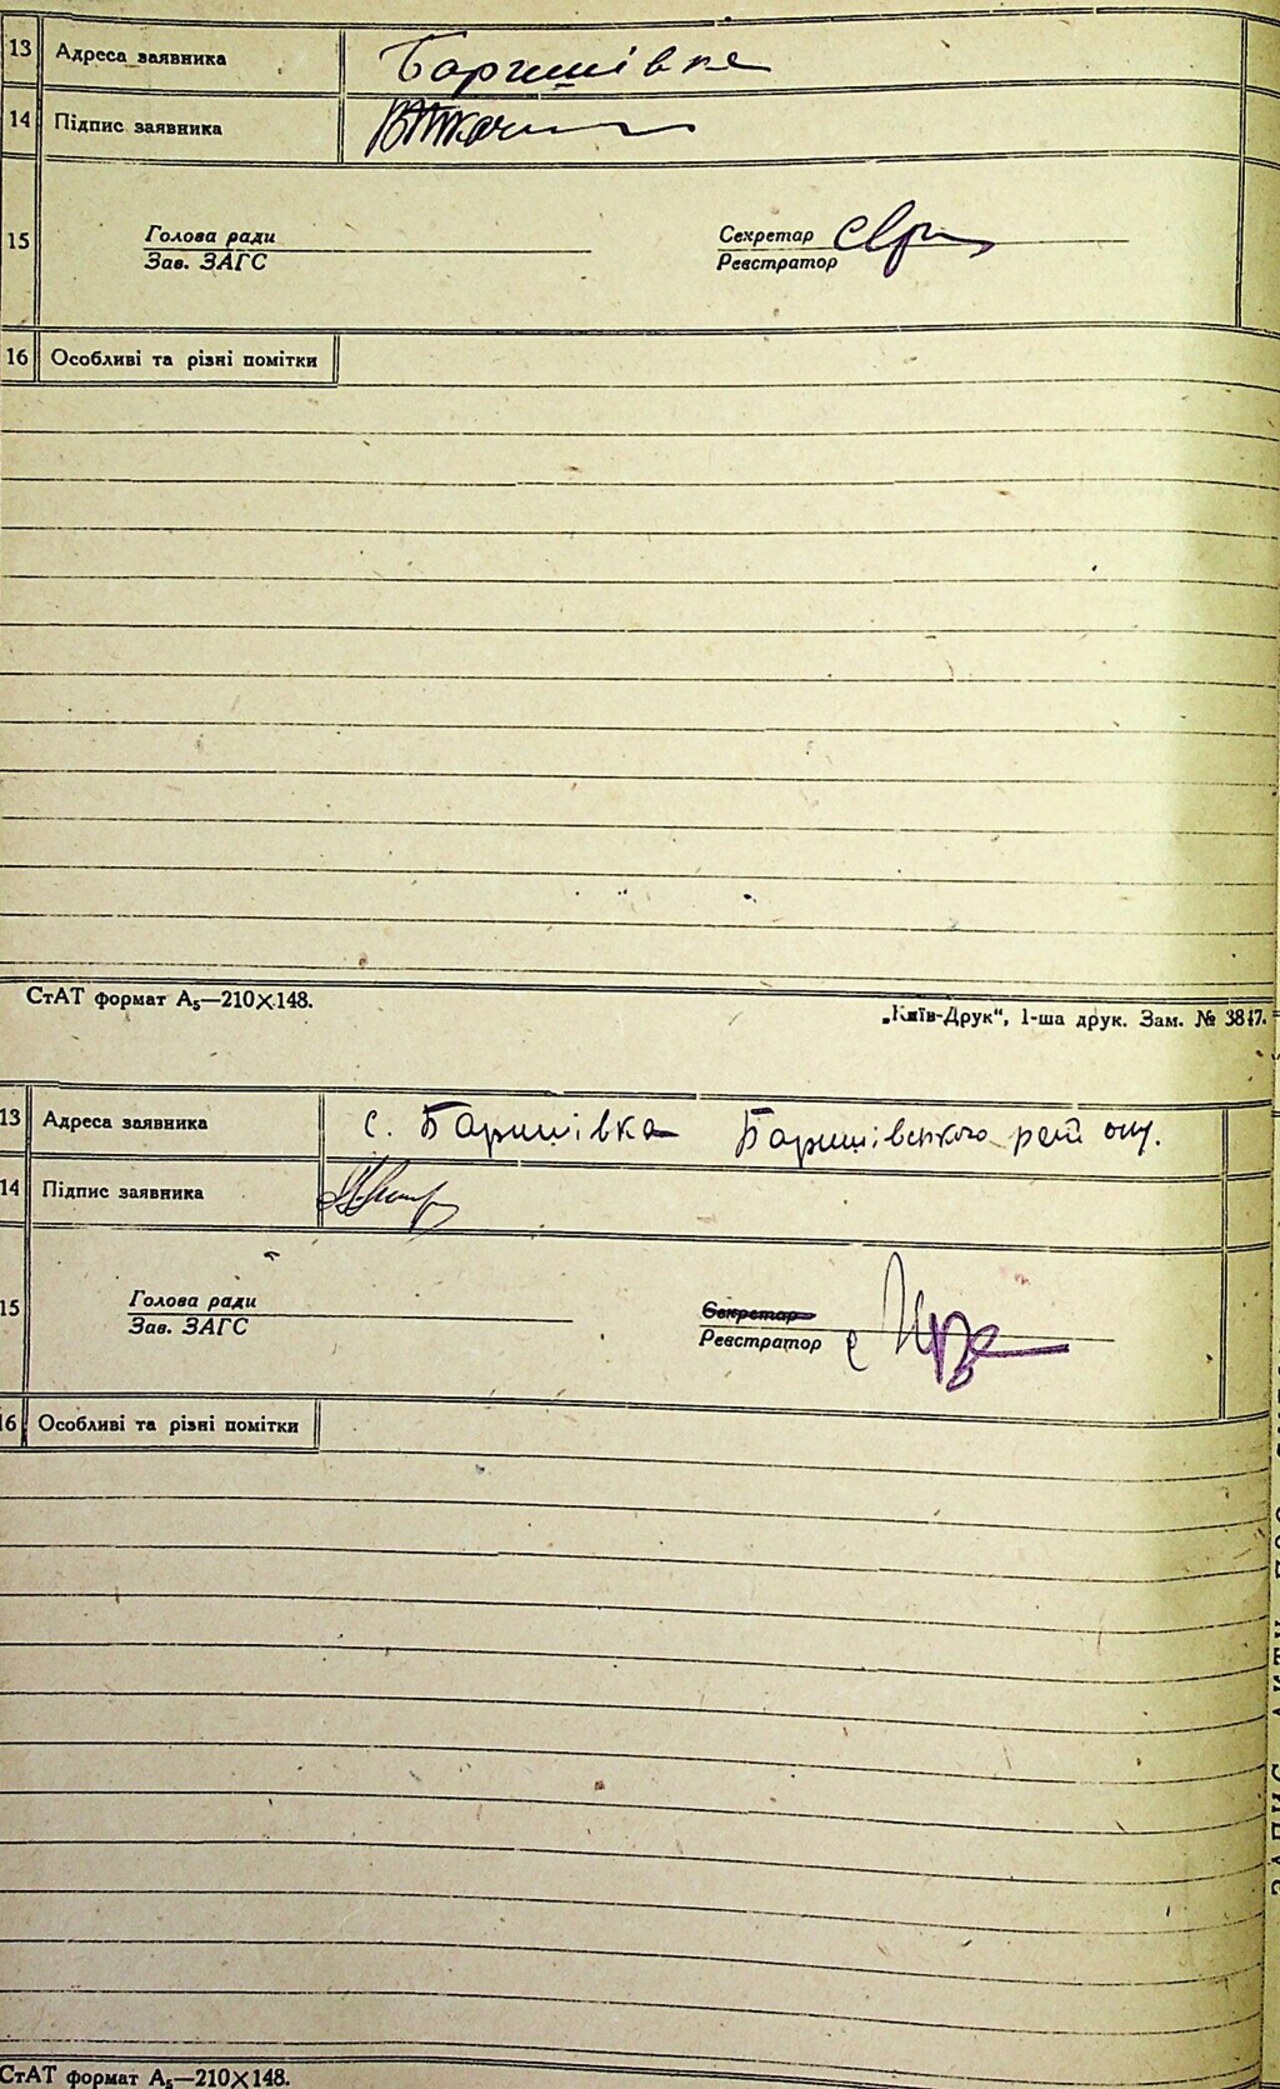 13 Адреса заявника Баришівка
14 Підпис заявника
15 Голова ради Секретар
Зав. ЗАГС Реєстратор
16 Особливі та різні помітки
СтАТ формат А₅—210×148.
„Київ-Друк“, 1-ша друк. Зам. № 3847.
13 Адреса заявника с. Баришівка Баришівського
14 Підпис заявника
15 Голова ради Секретар
Зав. ЗАГС Реєстратор
16 Особливі та різні помітки
СтАТ формат А₅—210×148.